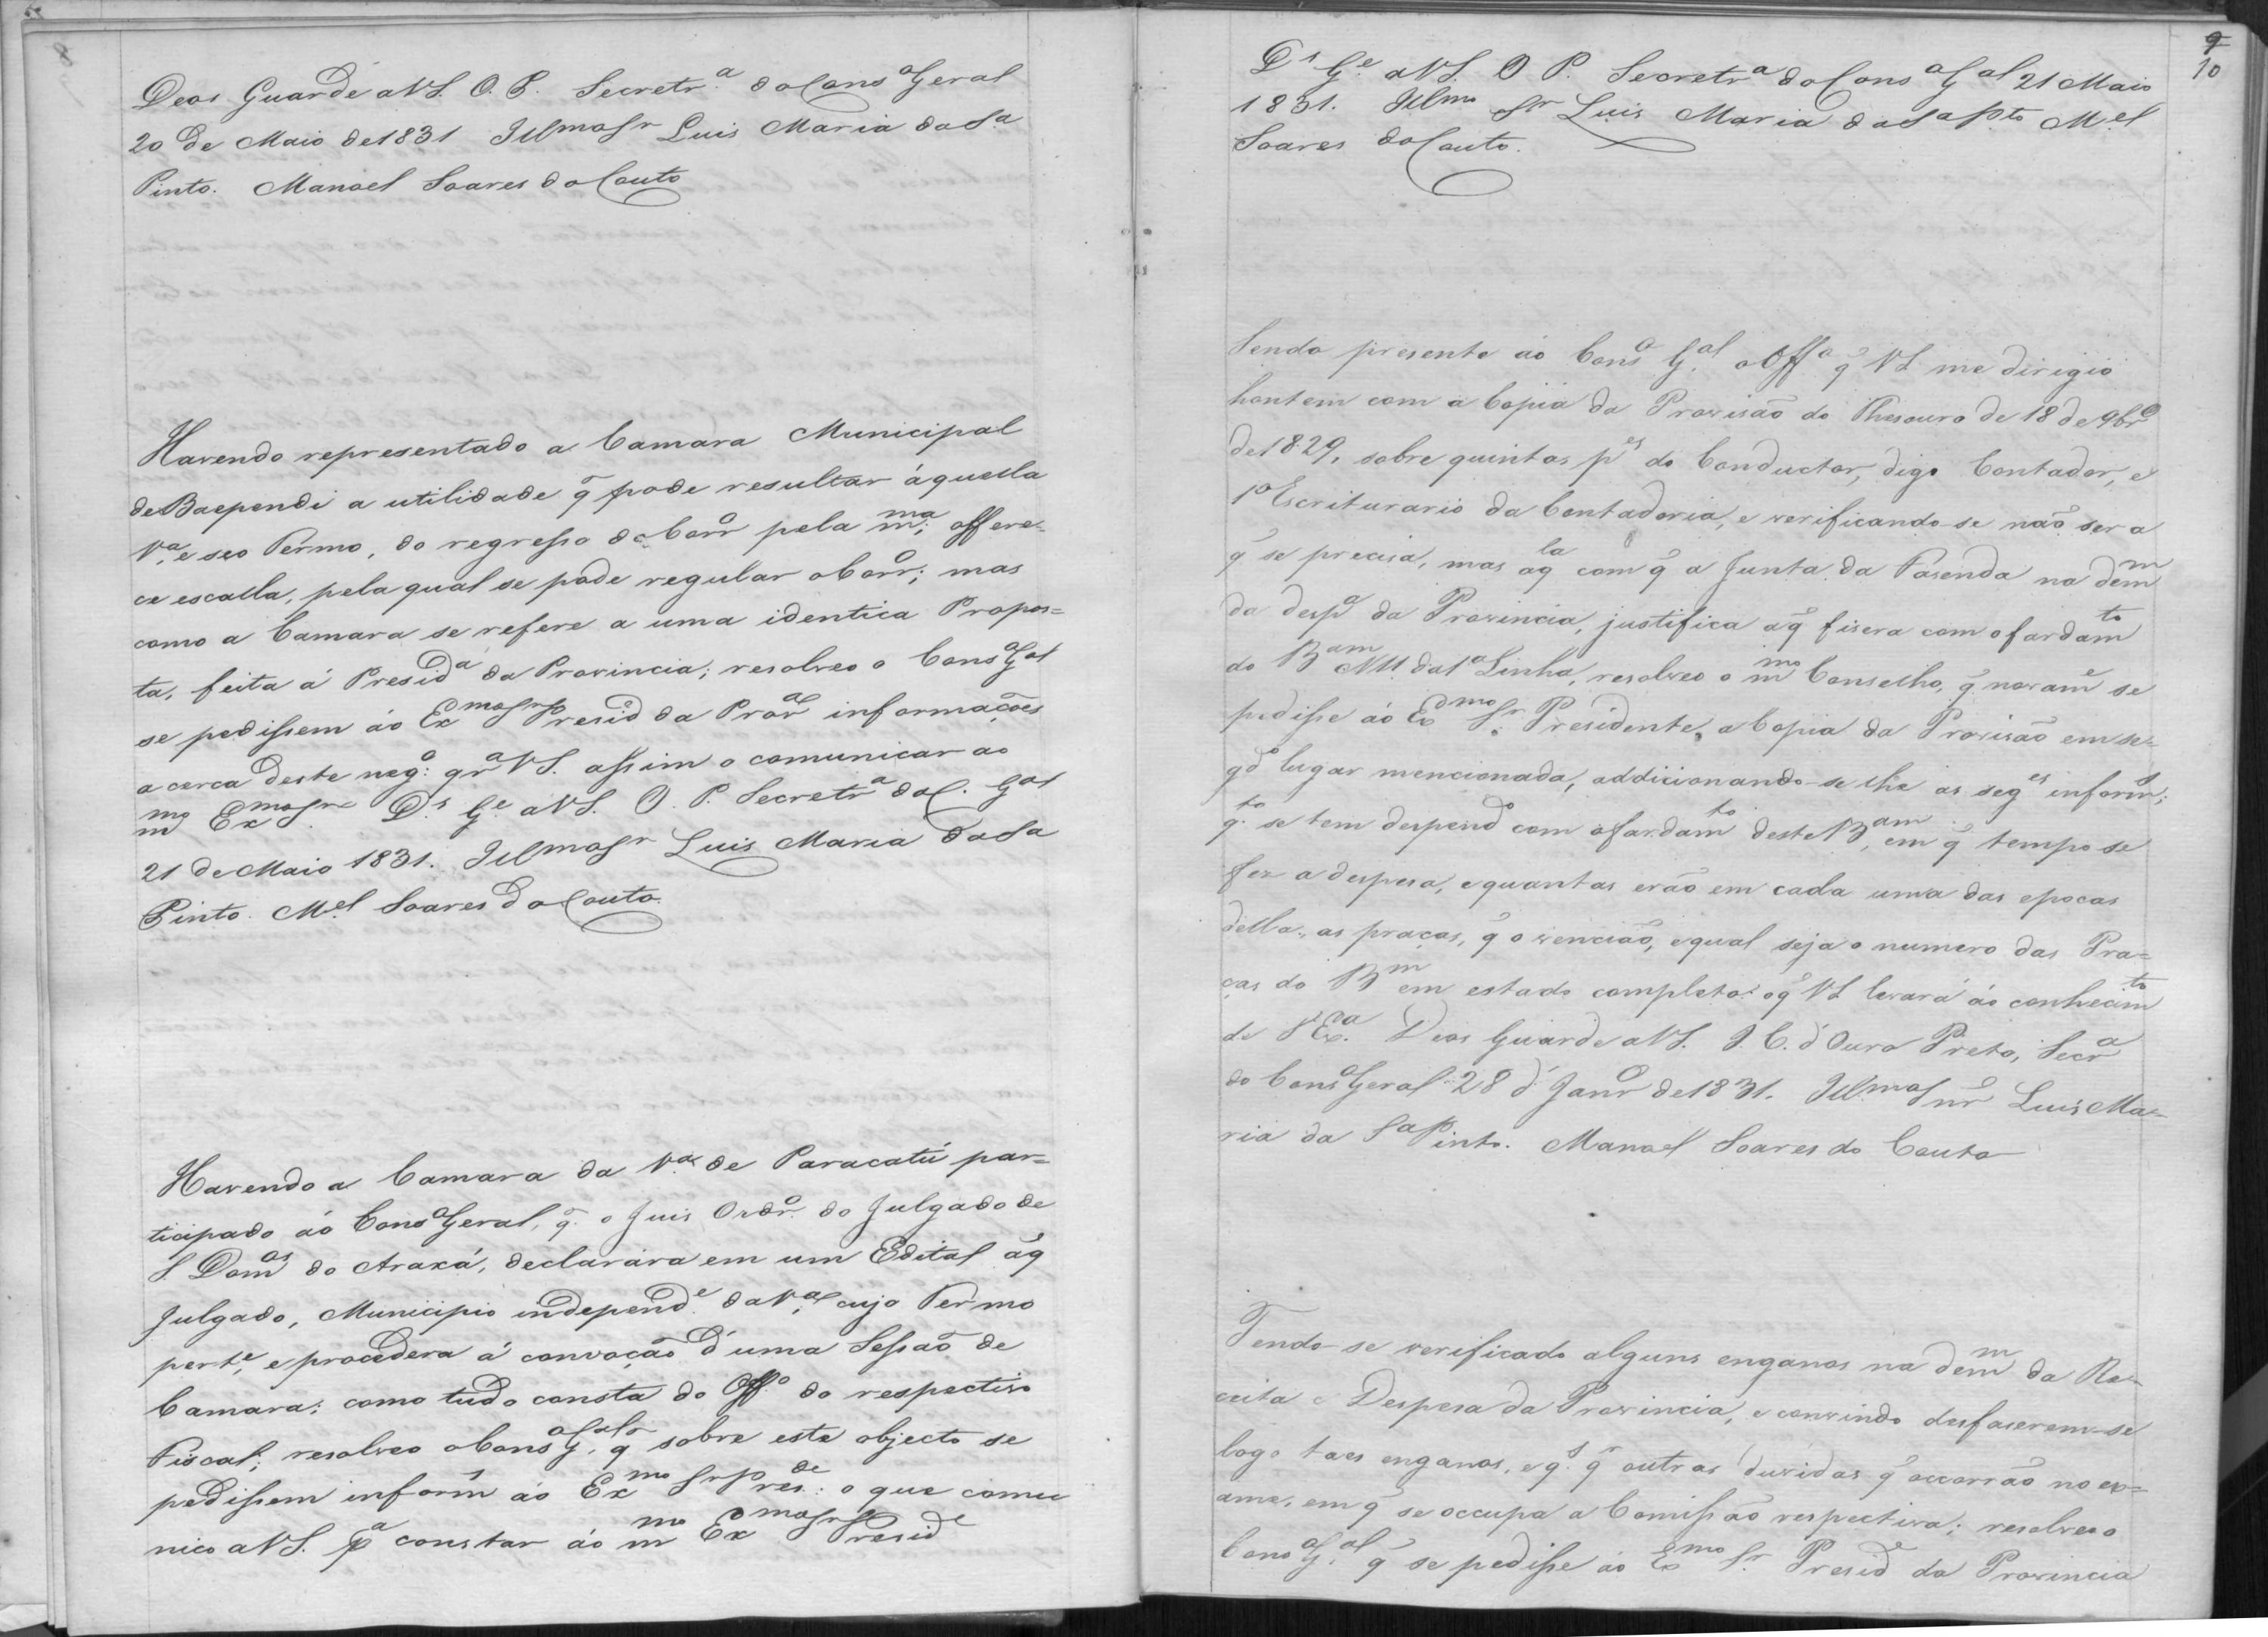 Deos Guarde a V S. O. P. Secretr.ª do Consº Geral
20 de Maio de 1831 Illmo Sr Luis Maria da Sª
Pinto. Manoel Soares do Couto
Havendo representado a Camara Municipal
de Baependi a utilidade q̃ pode resultar áquella
V.ª e seo Termo, do regresso do Corrº pela mma; offere-
ce escalla, pela qual se pode regular o Corrº; mas
como a Camara se refere a uma identica Propos=
ta, feita á Presidª da Provincia; resolveo o Consº Gal
se pedissem áo Exmo Sr Presid da Proval informações
a cerca deste negº: qrª V S. assim o comunicar ao
mmo Exmo Sr D.s G.e a V S. O. P. Secretrª do C. Gal
21 de Maio 1831. Illmo Sr Luis Maria da Sa
Pinto. Mel Soares do Couto.
Havendo a Camara da V.ª de Paracatú par=
ticipado áo Consº Geral, q̃. o Juis Ordrº. do Julgado de
S Domos do Araxá, declarára em um Edital áq
Julgado, Municipio independe. da V.ª, a cujo Termo
perte, e procedera á convocação d'uma Sessão de
Camara; como tudo consta do Offº do respectivo
Fiscal; resolveo o Consº Gal, q sobre este objecto se
pedissem inform̃ áo Exmo Sr Presde: o que comu
nico a V S. pª constar áo mmo Exmo Sr Preside
9
10
Ds Ge. a V S. O P. Secretrª do Consº Gal 21 Maio
1831. Illmo Sr Luis Maria da Sª Pto Mel
Soares do Couto.
Sendo presente áo Consº Gal. o Offº q̃ V S me dirigio
hontem com a Copia da Provisão do Thesouro de 18 de 9brº
de 1829, sobre quintos pes do Conductor, digo Contador, e
1º Escriturario da Contadoria, e verificando-se não ser a
q̃ se precisa, mas aqla com q̃ a Junta da Fasenda na demm
da despª da Provincia, justifica aq̃ fisera com o fardamto
do Bam N 11. da 1ª Linha, resolveo o mmo Conselho, q̃ novame se
pedisse áo Exmo Sr. Presidente, a Copia da Provisão em se-
gdº lugar mencionada, addicionando-se lhe as seges inform̃;
q.to se tem despendº com o fardamto deste Bam, em q̃ tempo se
fez a despesa, e quantas erão em cada uma das epocas
della, as praças, q̃ o vencião, e qual seja o numero das Pra=
ças do Bm em estado completo: oq̃ V S levará áo conhecimto
de S Exª. Deos Guarde a V S. I. C. d'Ouro Preto, Secrª
do Consº Geral 28 d' Janrº de 1831. Illmo Snr Luis Ma-
ria da Sª Pinto. Manoel Soares do Couto
Tendo-se verificado alguns enganos na demm da Re-
ceita e Despesa da Provincia, e convindo desfaserem-se
logo taes enganos, e qs. q̃ outras duvidas q̃ occorrão no ex=
ame, em q̃ se occupa a Comissão respectiva; resolveo o
Consº G.al q̃ se pedisse áo Exmo Sr. Preside da Provincia